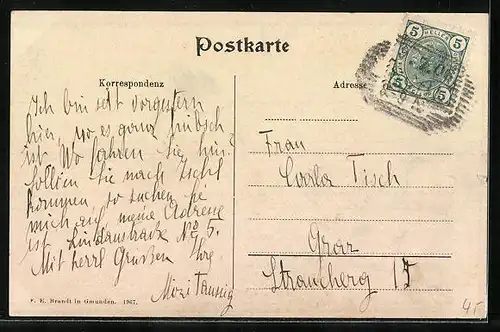 Postkarte
Korrespondenz
Adresse
5 HELLER 5
Ich bin seit vorgestern
hier, wo es ganz hübsch
ist. Wo fahren Sie hin?
Sollten Sie nach Ischl
kommen, so suchen Sie
mich auf, meine Adresse
ist Lindaustraße No 5.
Mit herzl Grüßen Ihre
Mizi Taussig
Frau
Carla Tisch
Graz
Straucherg 15
F. E. Brandt in Gmunden. 1907.